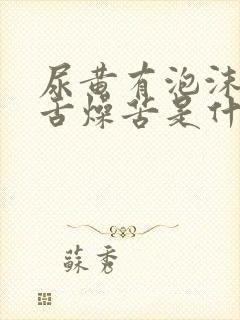 尿黄有泡沫
舌燥苦是什
蘇秀